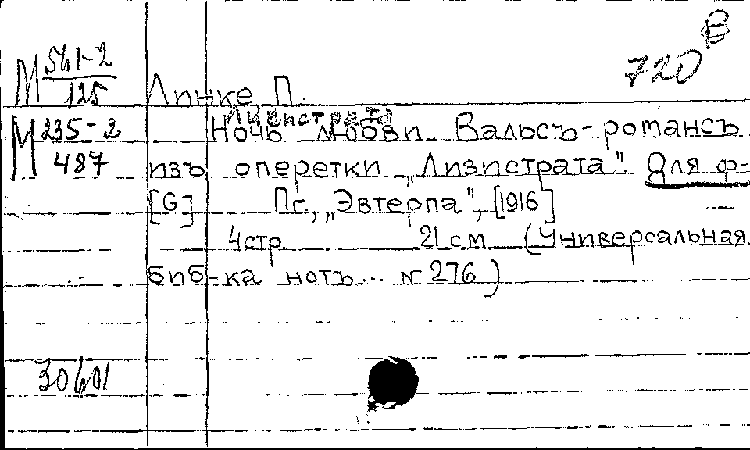 В
720
М 561-2
125
Линке П.
Лизистрата
М 235-2
487
Ночь любви. Вальсъ-романсъ
изъ оперетки „Лизистрата". Для ф-
[G] Пг., „Эвтерпа", [1916]
4 стр. 21 см (Универсальная
биб-ка нотъ... № 276)
30601